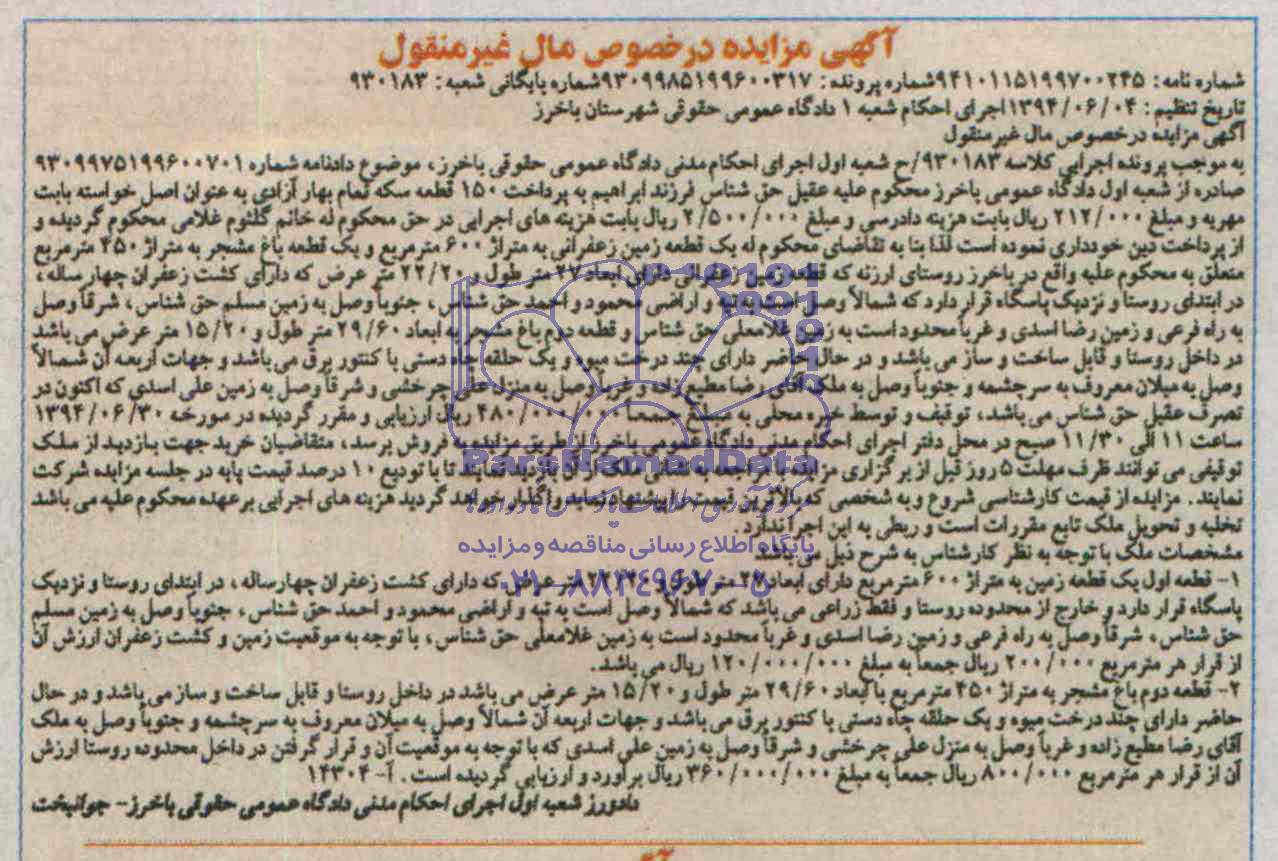 آگهی مزایده درخصوص مال غیرمنقول
شماره نامه: ۹۴۱۰۱۱۵۱۹۹۷۰۰۲۴۵شماره پرونده: ۹۳۰۹۹۸۵۱۹۹۶۰۰۳۱۷شماره بایگانی شعبه: ۹۳۰۱۸۳
تاریخ تنظیم: ۱۳۹۴/۰۶/۰۴اجرای احکام شعبه ۱ دادگاه عمومی حقوقی شهرستان باخرز
آگهی مزایده درخصوص مال غیرمنقول
به موجب پرونده اجرایی کلاسه ۹۳۰۱۸۳/ح شعبه اول اجرای احکام مدنی دادگاه عمومی حقوقی باخرز، موضوع دادنامه شماره ۹۳۰۹۹۷۵۱۹۹۶۰۰۷۰۱
صادره از شعبه اول دادگاه عمومی باخرز محکوم علیه عقیل حق شناس فرزند ابراهیم به پرداخت ۱۵۰ قطعه سکه تمام بهار آزادی به عنوان اصل خواسته بابت
مهریه و مبلغ ۲۱۲/۰۰۰ ریال بابت هزینه دادرسی و مبلغ ۲/۵۰۰/۰۰۰ ریال بابت هزینه های اجرایی در حق محکوم له خانم گلثوم غلامی محکوم گردیده و
از پرداخت دین خودداری نموده است لذا بنا به تقاضای محکوم له یک قطعه زمین زعفرانی به متراژ ۶۰۰ مترمربع و یک قطعه باغ مشجر به متراژ ۴۵۰ مترمربع
متعلق به محکوم علیه واقع در باخرز روستای ارزنه که قطعه زمین زعفرانی دارای ابعاد ۲۷ متر طول و ۲۲/۲۰ متر عرض که دارای کشت زعفران چهار ساله،
در ابتدای روستا و نزدیک پاسگاه قرار دارد که شمالاً وصل است به تپه و اراضی محمود و احمد حق شناس، جنوباً وصل به زمین مسلم حق شناس، شرقاً وصل
به راه فرعی و زمین رضا اسدی و غرباً محدود است به زمین غلامعلی حق شناس و قطعه دوم باغ مشجر به ابعاد ۲۹/۶۰ متر طول و ۱۵/۲۰ متر عرض می باشد
در داخل روستا و قابل ساخت و ساز می باشد و در حال حاضر دارای چند درخت میوه و یک حلقه چاه دستی با کنتور برق می باشد و جهات اربعه آن شمالاً
وصل به میلان معروف به سرچشمه و جنوباً وصل به ملک آقای رضا مطیع زاده و غرباً وصل به منزل علی چرخشی و شرقاً وصل به زمین علی اسدی که اکنون در
تصرف عقیل حق شناس می باشد، توقیف و توسط خبره محلی به مبلغ جمعاً ۴۸۰/۰۰۰/۰۰۰ ریال ارزیابی و مقرر گردیده در مورخه ۱۳۹۴/۰۶/۳۰
ساعت ۱۱ الی ۱۱/۳۰ صبح در محل دفتر اجرای احکام مدنی دادگاه عمومی باخرز از طریق مزایده به فروش برسد، متقاضیان خرید جهت بازدید از ملک
توقیفی می توانند ظرف مهلت ۵ روز قبل از برگزاری مزایده با مراجعه به نشانی ملک از آن بازدید نمایند تا با تودیع ۱۰ درصد قیمت پایه در جلسه مزایده شرکت
نمایند. مزایده از قیمت کارشناسی شروع و به شخصی که بالاترین قیمت را پیشنهاد نماید واگذار خواهد گردید هزینه های اجرایی بر عهده محکوم علیه می باشد
تخلیه و تحویل ملک تابع مقررات است و ربطی به این اجرا ندارد.
مشخصات ملک با توجه به نظر کارشناس به شرح ذیل می باشد
۱- قطعه اول یک قطعه زمین به متراژ ۶۰۰ مترمربع دارای ابعاد ۲۷ متر طول و ۲۲/۲۰ متر عرض که دارای کشت زعفران چهارساله، در ابتدای روستا و نزدیک
پاسگاه قرار دارد و خارج از محدوده روستا و فقط زراعی می باشد که شمالاً وصل است به تپه و اراضی محمود و احمد حق شناس، جنوباً وصل به زمین مسلم
حق شناس، شرقاً وصل به راه فرعی و زمین رضا اسدی و غرباً محدود است به زمین غلامعلی حق شناس، با توجه به موقعیت زمین و کشت زعفران ارزش آن
از قرار هر مترمربع ۲۰۰/۰۰۰ ریال جمعاً به مبلغ ۱۲۰/۰۰۰/۰۰۰ ریال می باشد.
۲- قطعه دوم باغ مشجر به متراژ ۴۵۰ مترمربع با ابعاد ۲۹/۶۰ متر طول و ۱۵/۲۰ متر عرض می باشد در داخل روستا و قابل ساخت و ساز می باشد و در حال
حاضر دارای چند درخت میوه و یک حلقه چاه دستی با کنتور برق می باشد و جهات اربعه آن شمالاً وصل به میلان معروف به سرچشمه و جنوباً وصل به ملک
آقای رضا مطیع زاده و غرباً وصل به منزل علی چرخشی و شرقاً وصل به زمین علی اسدی که با توجه به موقعیت آن و قرار گرفتن در داخل محدوده روستا ارزش
آن از قرار هر مترمربع ۸۰۰/۰۰۰ ریال جمعاً به مبلغ ۳۶۰/۰۰۰/۰۰۰ ریال برآورد و ارزیابی گردیده است. آ- ۱۴۳۰۴
دادورز شعبه اول اجرای احکام مدنی دادگاه عمومی حقوقی باخرز- جوانبخت
ParsNamadData
پایگاه اطلاع رسانی مناقصه و مزایده
۰۲۱-۸۸۳۴۹۶۷۰-۵